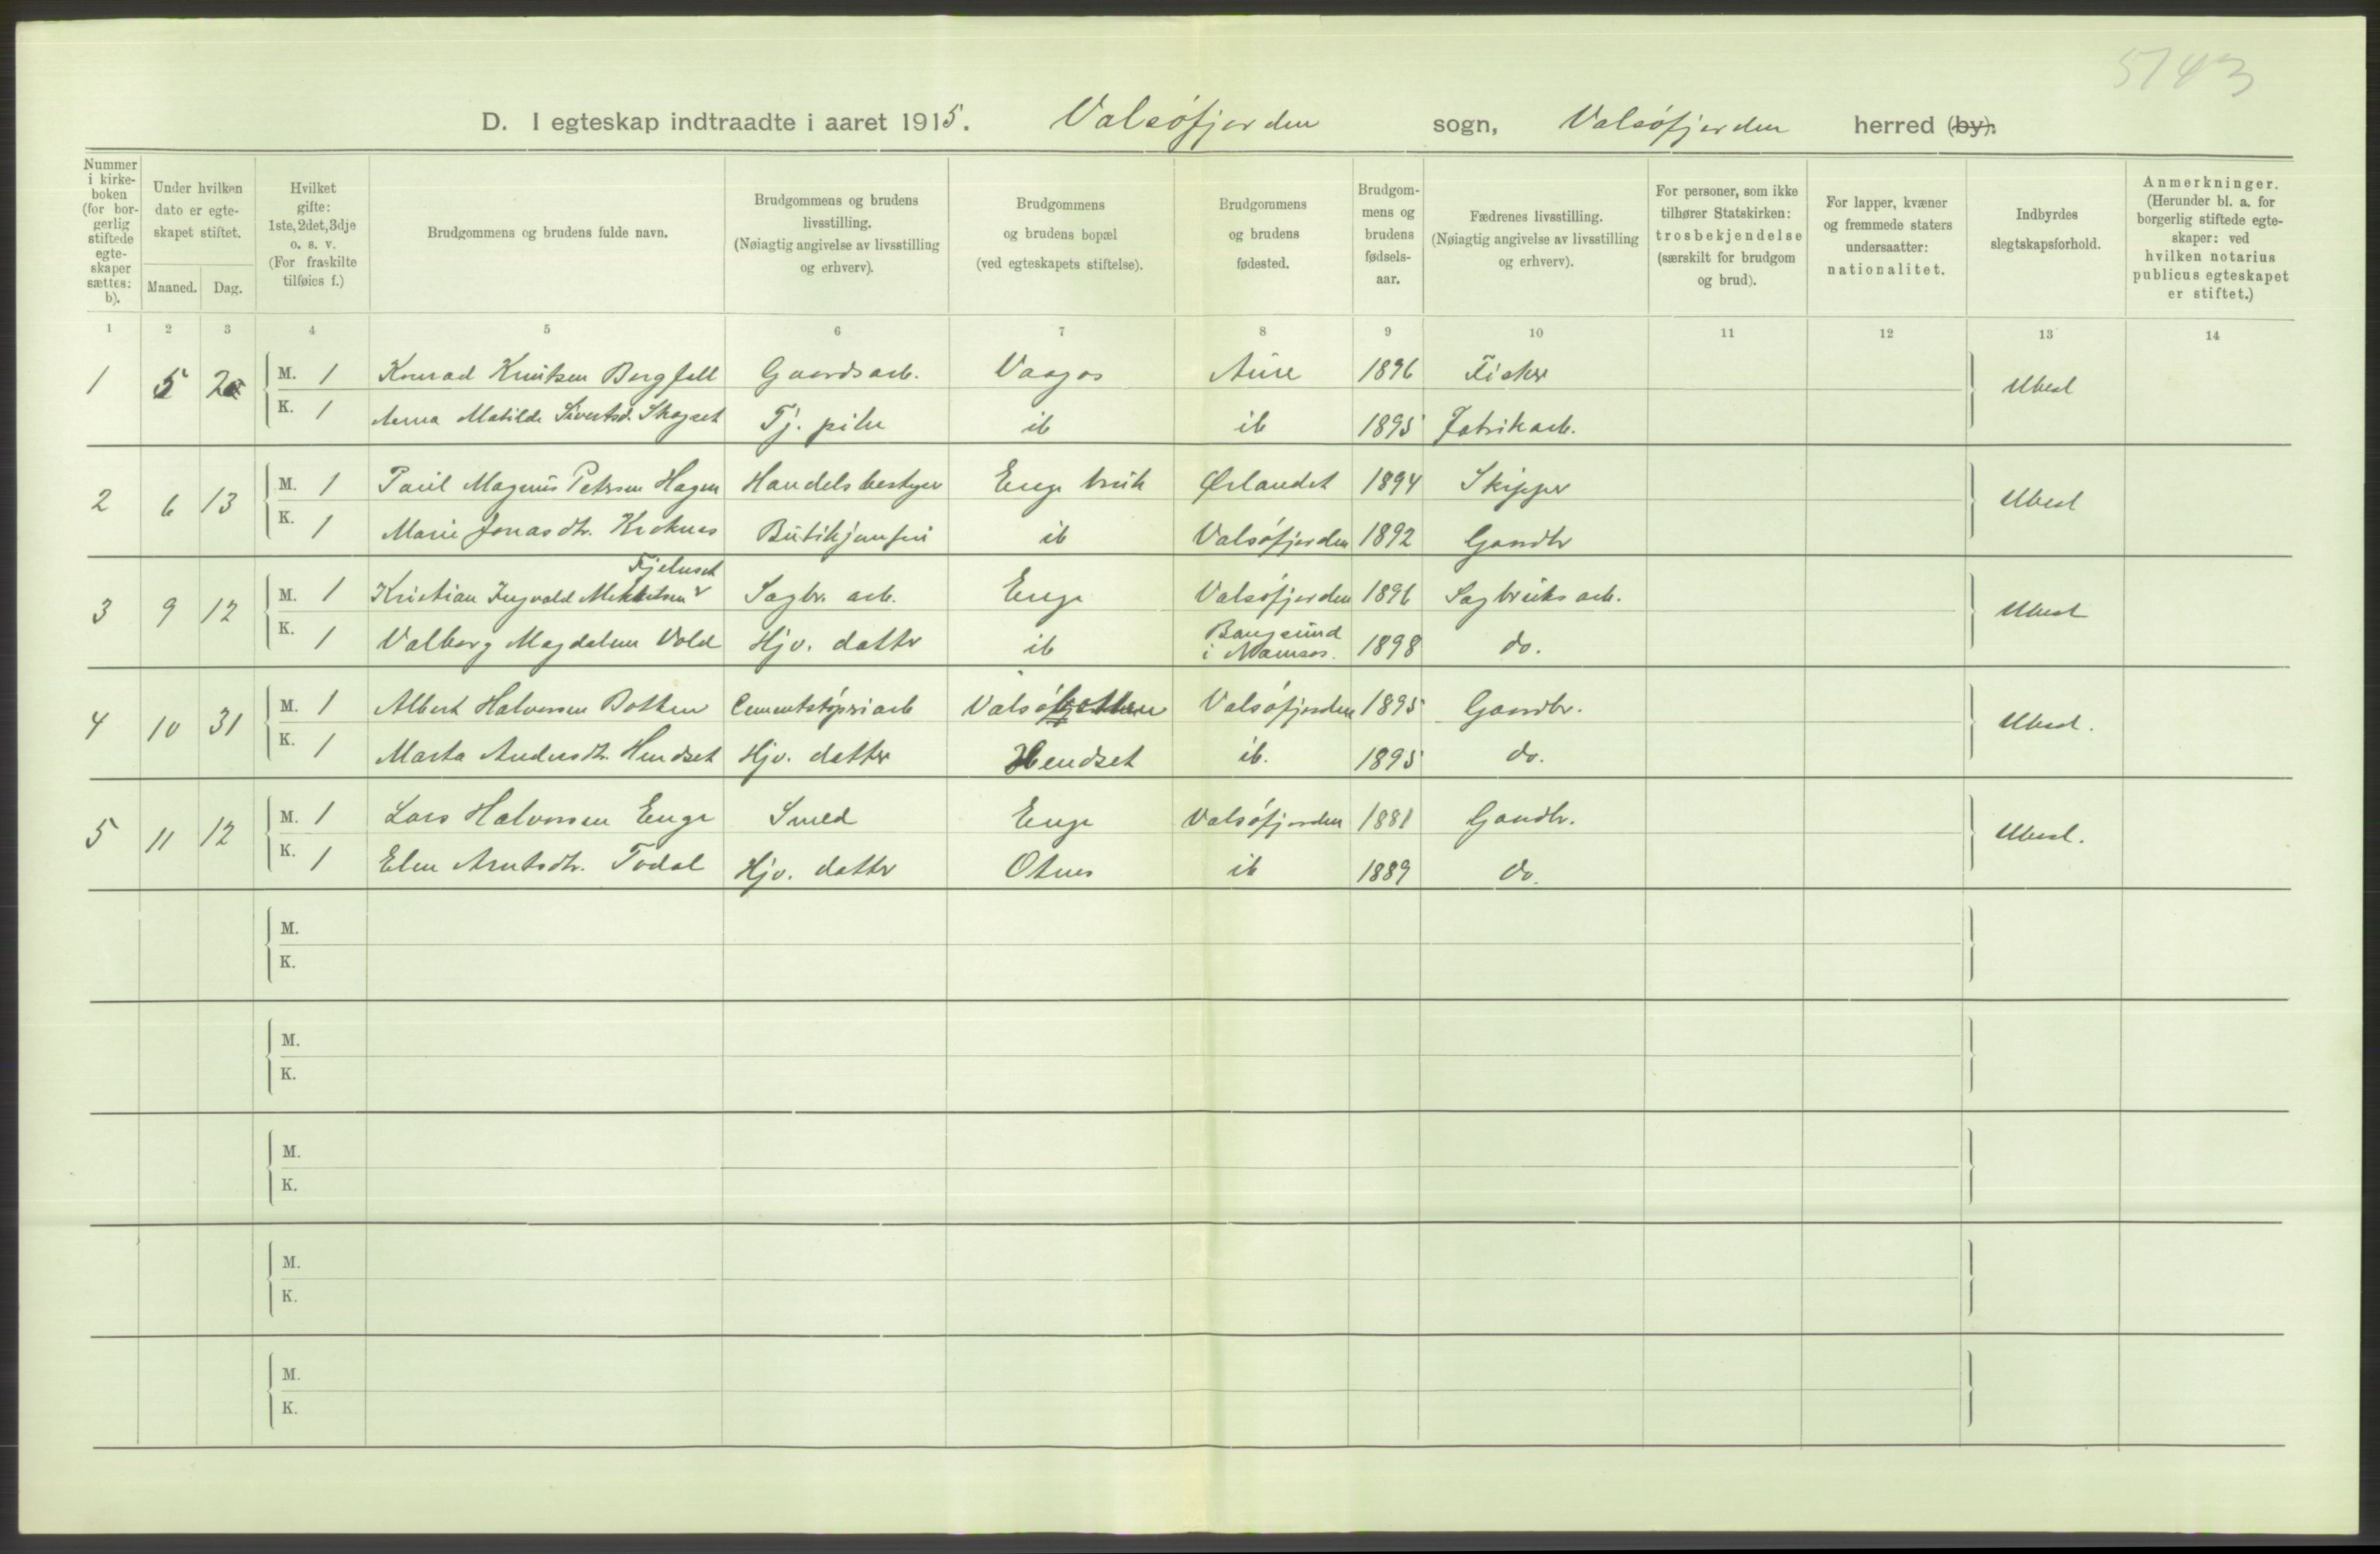 5743
D. I egteskap indtraadte i aaret 1915. Valsøfjorden sogn, Valsøfjorden herred (by).
Nummer i kirke-boken (for bor-gerlig stiftede egte-skaper sættes: b).
Under hvilken dato er egte-skapet stiftet.
Maaned. Dag.
Hvilket gifte: 1ste, 2det, 3dje o. s. v. (For fraskilte tilføies f.)
Brudgommens og brudens fulde navn.
Brudgommens og brudens livsstilling. (Nøiagtig angivelse av livsstilling og erhverv).
Brudgommens og brudens bopæl (ved egteskapets stiftelse).
Brudgommens og brudens fødested.
Brudgom-mens og brudens fødsels-aar.
Fædrenes livsstilling. (Nøiagtig angivelse av livsstilling og erhverv).
For personer, som ikke tilhører Statskirken: trosbekjendelse (særskilt for brudgom og brud).
For lapper, kvæner og fremmede staters undersaatter: nationalitet.
Indbyrdes slegtskapsforhold.
Anmerkninger. (Herunder bl. a. for borgerlig stiftede egte-skaper: ved hvilken notarius publicus egteskapet er stiftet.)
1 2 3 4 5 6 7 8 9 10 11 12 13 14
1 5 M. 1 Konrad Knutsen Bergfall Gaardsarb. Vaagos Aure 1896 Fisker Ubesl
K. 1 Anna Matilde Sivertsd. Skogset Tj. pike ib ib 1895 Fabrikarb.
2 6 13 M. 1 Paul Magnus Petersen Hagen Handelsbestyrer Enge bruk Ørlandet 1894 Skipper Ubesl
K. 1 Marie Jonasdtr. Kroknes Butikjomfru ib Valsøfjorden 1892 Gaardbr
Fjelnset
3 9 12 M. 1 Kristian Ingvald Mekkelsen Sagbr. arb. Enge Valsøfjorden 1896 Sagbruksarb. Ubesl
K. 1 Valborg Magdalene Vold Hjv. datter ib Bangsund i Namsos. 1898 do.
4 10 31 M. 1 Albert Halvorsen Botten Cementstøperiarb Valsøbotten Valsøfjorden 1895 Gaardbr. Ubesl.
K. 1 Marta Andersdtr. Hendset Hjv. datter Hendset ib. 1895 do.
5 11 12 M. 1 Lars Halvorsen Enge Smed Enge Valsøfjorden 1881 Gaardbr. Ubesl.
K. 1 Elen Arntsdtr. Todal Hjv. datter Otnes ib 1889 do.
M.
K.
M.
K.
M.
K.
M.
K.
M.
K.